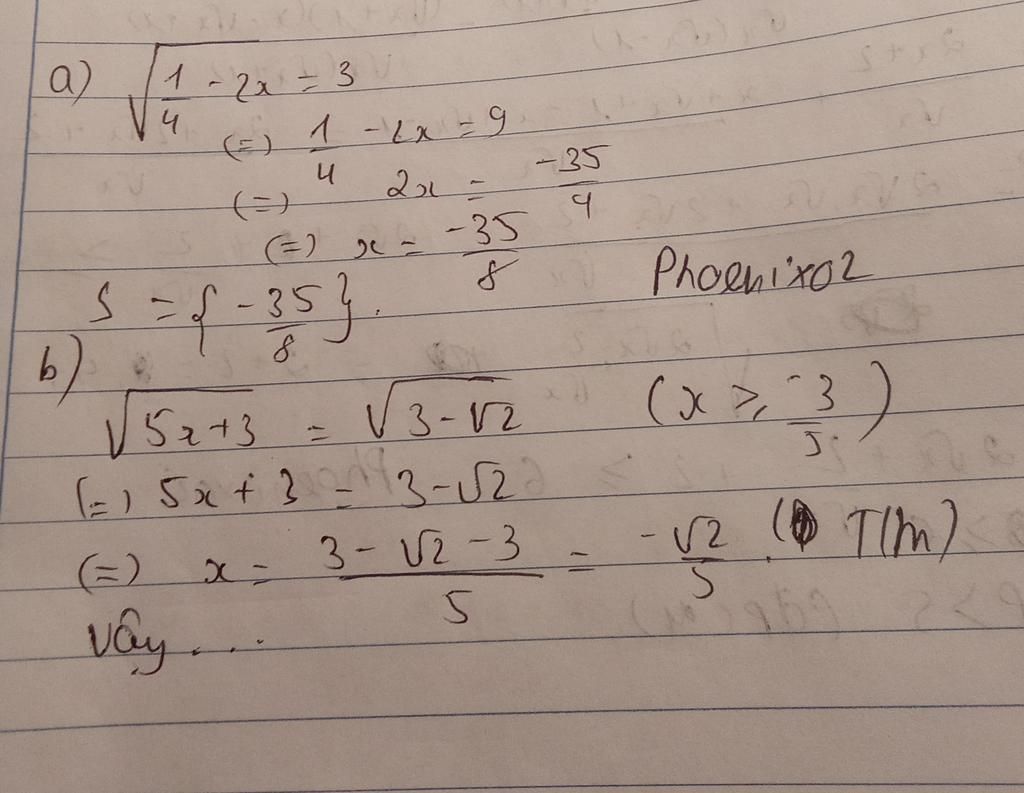 a) √(1/4 - 2x) = 3
(=) 1/4 - 2x = 9
(=) 2x = -35/4
(=) x = -35/8
S = { -35/8 }.
Phoenix02
b)
√(5x+3) = √(3-√2) (x ≥ -3/5)
(=) 5x + 3 = 3-√2
(=) x = (3 - √2 - 3)/5 = -√2/5. (T/m)
Vậy ...